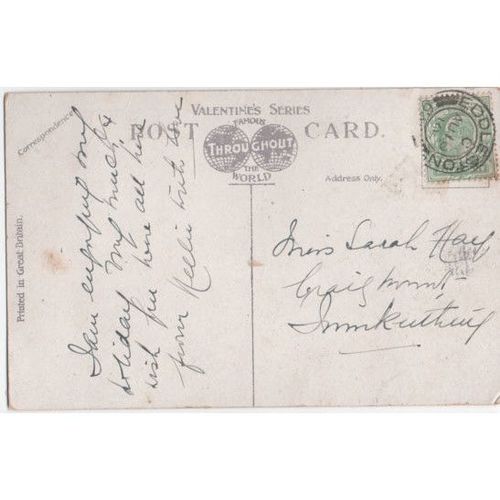 VALENTINE'S SERIES
POST CARD.
FAMOUS
THROUGHOUT
THE
WORLD
Correspondence
Address Only.
Printed in Great Britain.
I am enjoying my
holiday very much &
wish you were all here
from Nellie with love
Miss Sarah Hay
Craigmount
Innerkeithing
EDDLESTON